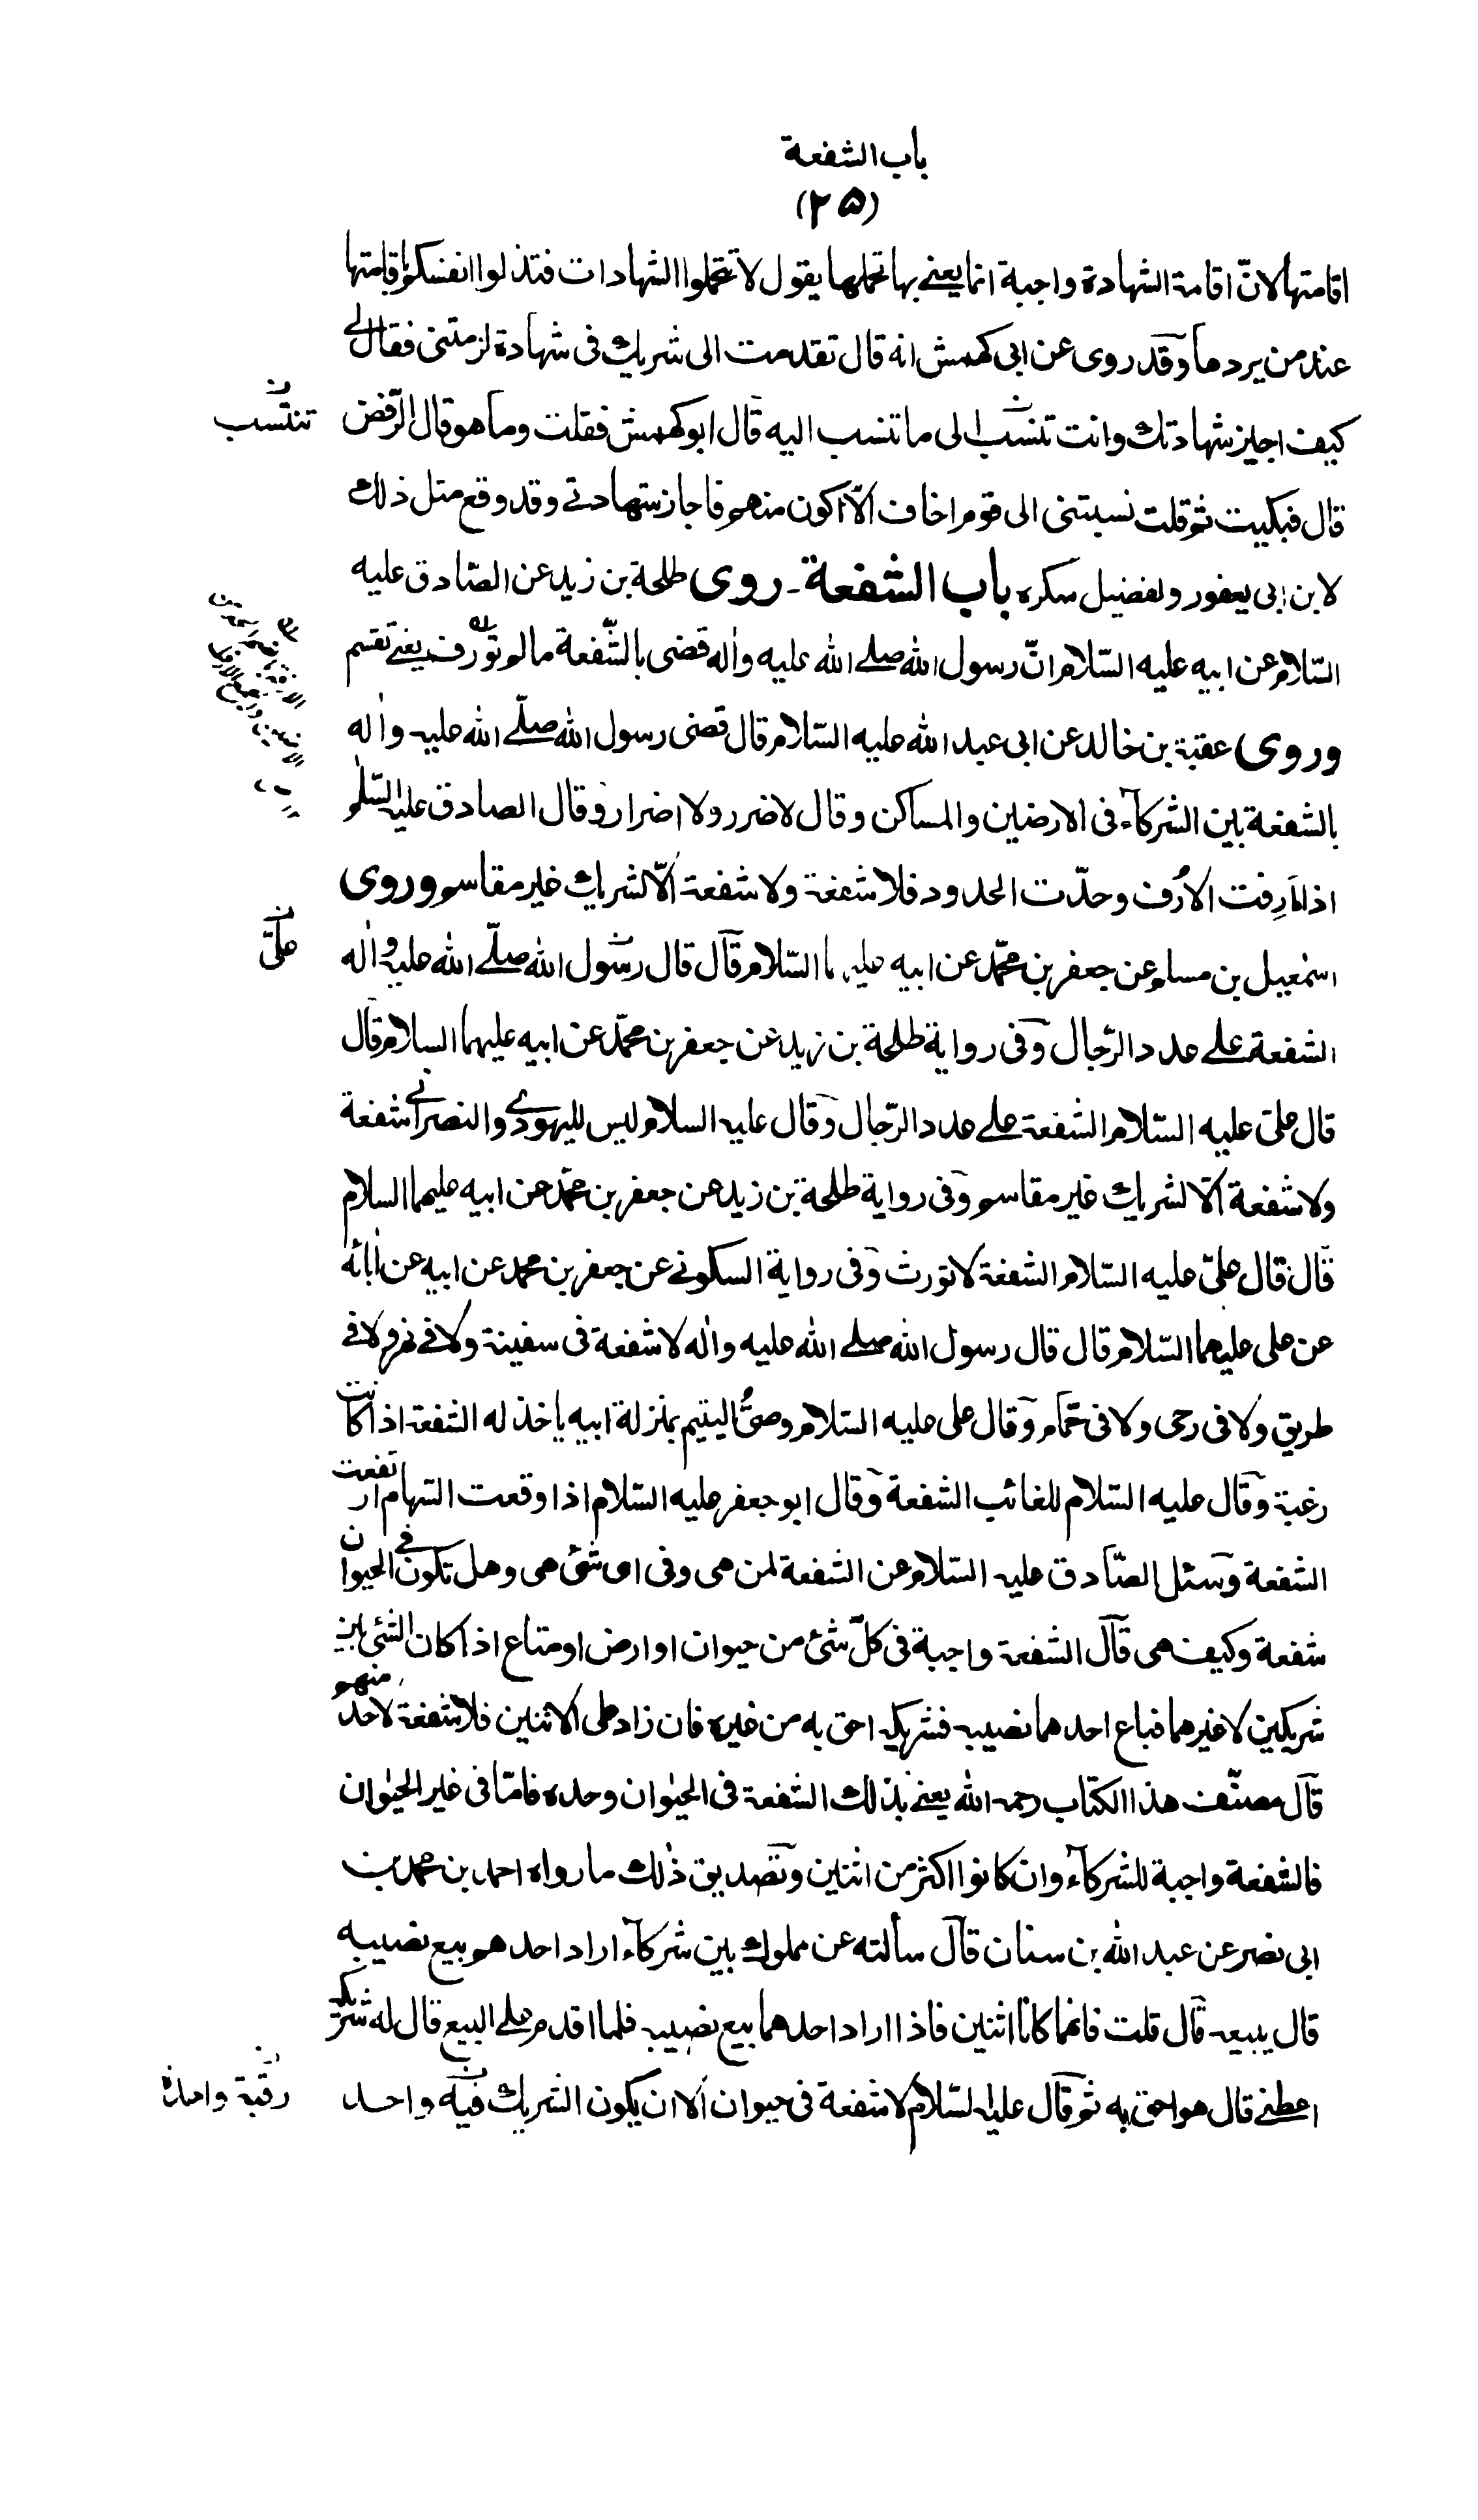 باب الشفعة
(۲۵)
اقامتها لانّ اقامة الشهادة واجبة انما يعنى بها تحملها يقول لا تتحملوا الشهادات فتذلوا انفسكم باقامتها
عند من يردها وقد روى عن ابى كهمش انه قال تقدمت الى شريك فى شهادة لزمتنى فقال لى
كيف اجيز شهادتك وانت تنسب الى ما تنسب اليه قال ابو كهمش فقلت وما هو قال الرّفض
تنتسب
قال فبكيت ثم قلت نسبتنى الى قوم اخاف الّا اكون منهم فاجاز شهادتى وقد وقع مثل ذلك
لابن ابى يعفور ولفضيل سكره باب الشفعة ـ روى طلحة بن زيد عن الصّادق عليه
السّلام عن ابيه عليه السّلام انّ رسول الله صلى الله عليه واله قضى بالشّفعة ما لم تورّف يعنى تقسم
وروى عقبة بن خالد عن ابى عبد الله عليه السّلام قال قضى رسول الله صلّى الله عليه واله
بالشفعة بين الشركآء فى الارضين والمساكن وقال لا ضرر ولا اضرار وقال الصادق عليه السّلم
اذا اُرِفت الاُرَف وحدّت الحدود فلا شفعة ولا شفعة الّا لشريك غير مقاسم وروى
اسمٰعيل بن مسلم عن جعفر بن محمّد عن ابيه عليهما السّلام قال قال رسول الله صلّى الله عليه واله
علىّ
الشفعة على عدد الرّجال وفى رواية طلحة بن زيد عن جعفر بن محمّد عن ابيه عليهما السلام قال
قال علىّ عليه السّلام الشفعة على عدد الرّجال وقال عليه السلام ليس لليهودى والنصرانى شفعة
ولا شفعة الّا لشريك غير مقاسم وفى رواية طلحة بن زيد عن جعفر بن محمّد عن ابيه عليهما السلام
قال قال علىّ عليه السّلام الشفعة لا تورث وفى رواية السكونى عن جعفر بن محمد عن ابيه عن اٰبائه
عن على عليهما السّلام قال قال رسول الله صلى الله عليه واله لا شفعة فى سفينة ولا فى نهر ولا فى
طريق ولا فى رحى ولا فى حمّام وقال على عليه السّلام وصىُّ اليتيم بمنزلة ابيه ياخذ له الشفعة اذا كانت
رغبة وقال عليه السّلام للغائب الشفعة وقال ابو جعفر عليه السّلام اذا وقعت السّهام ارتفعت
الشفعة وسئل الصّادق عليه السّلام عن الشفعة لمن هى وفى اى شئ هى وهل تكون فى الحيوان
شفعة وكيف هى قال الشفعة واجبة فى كلّ شئ من حيوان او ارض او متاع اذا كان الشئ بين
شريكين لا غيرهما فباع احدهما نصيبه فشريكه احق به من غيره فان زاد على الاثنين فلا شفعة لاحد منهم
قال مصنّف هذا الكتاب رحمه الله يعنى بذلك الشفعة فى الحيوٰان وحده فامّا فى غير الحيوٰان
فالشفعة واجبة للشركآء وان كانوا اكثر من اثنين وتصديق ذلك ما رواه احمد بن محمد بن
ابى نصر عن عبد الله بن سنان قال سألته عن مملوك بين شركآء اراد احدهم بيع نصيبه
قال يبيعه قال قلت فانهما كانا اثنين فاذا اراد احدهما بيع نصيبه فلما اقدم على البيع قال له شريكه
اعطنى قال هو احق به ثم قال عليه السّلام لا شفعة فى حيوان الا ان يكون الشريك فيه واحد
رقبة واحدة